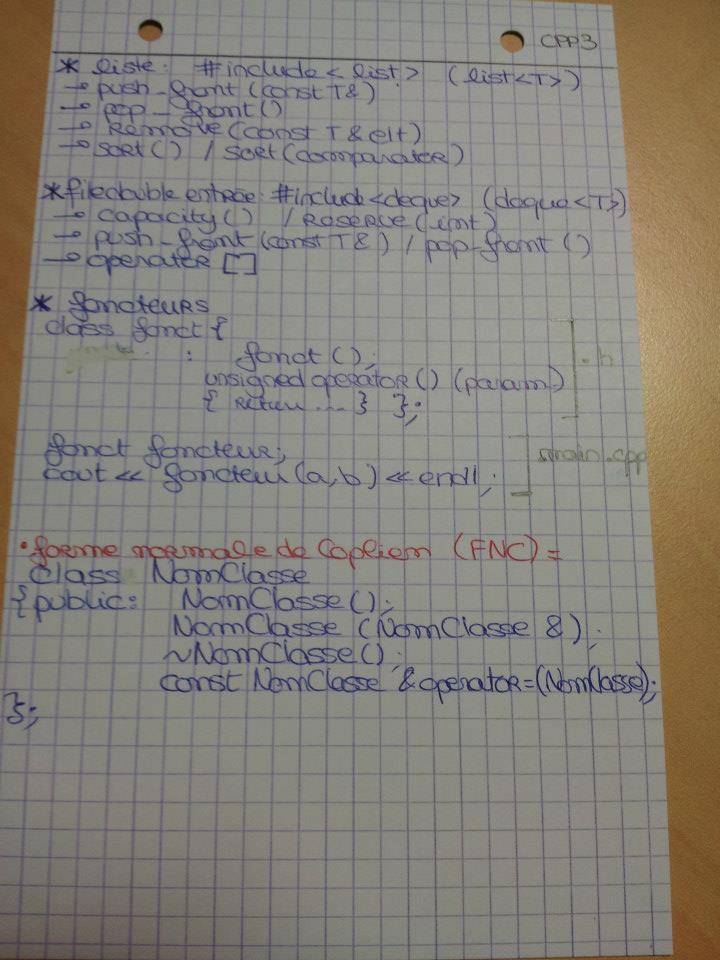 CPP3
* liste: #include <list> (list<T>)
→ push_front (const T&)
→ pop_front ()
→ Remove (const T & elt)
→ sort () / sort (comparator)
* file double entrée: #include <deque> (deque<T>)
→ capacity () / Reserve (int)
→ push_front (const T&) / pop_front ()
→ operator []
* foncteurs
class fonct {
: fonct ();
unsigned operator () (param)
{ return ... } };
.h
fonct foncteur;
cout << foncteur (a, b) << endl;
main.cpp
• forme normale de Coplien (FNC) =
class NomClasse
{ public: NomClasse ();
NomClasse (NomClasse &);
~NomClasse ();
const NomClasse & operator=(NomClasse);
};